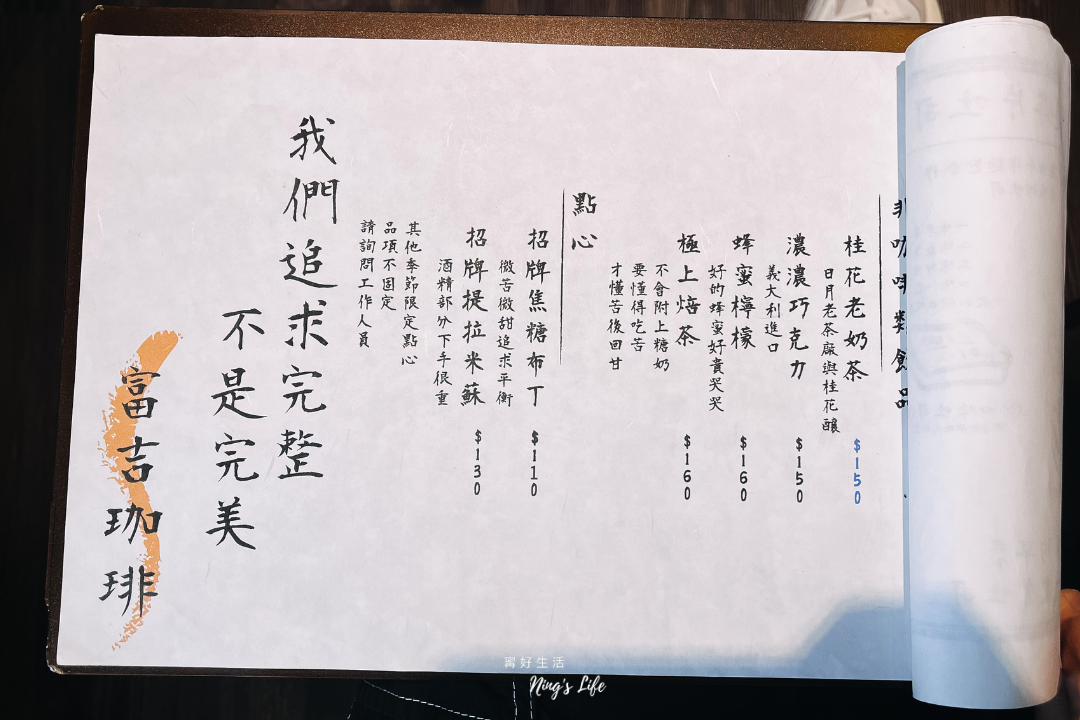 非咖啡類飲品
桂花老奶茶 $150
日月老茶廠與桂花釀
濃濃巧克力 $150
義大利進口
蜂蜜檸檬 $160
好的蜂蜜好貴哭哭
極上焙茶 $160
不會附上糖奶
要懂得吃苦
才懂苦後回甘
點心
招牌焦糖布丁 $110
微苦微甜追求平衡
招牌提拉米蘇 $130
酒精部分下手很重
其他季節限定點心
品項不固定
請詢問工作人員
我們追求完整
不是完美
富吉珈琲
甯好生活
Ning's Life